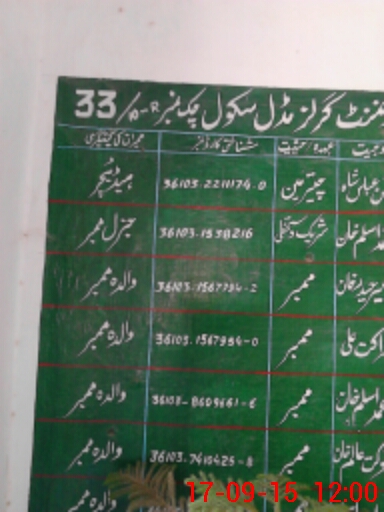 منٹ گرلز مڈل سکول چک نمبر 33/10-R
عہدہ / حیثیت شناختی کارڈ نمبر ممبران کی کیٹیگری
عباس شاہ چیئرمین 36103-2211174-0 ہیڈ ٹیچر
اسلم خان شریک دستخطی 36103-1538216 جنرل ممبر
حیدر خان ممبر 36103-1567794-2 والدہ ممبر
برکت علی ممبر 36103-1567994-0 والدہ ممبر
اسلم خان ممبر 36103-8609661-6 والدہ ممبر
عالم خان ممبر 36103-7410425-8 والدہ ممبر
والدہ ممبر
17-09-15 12:00